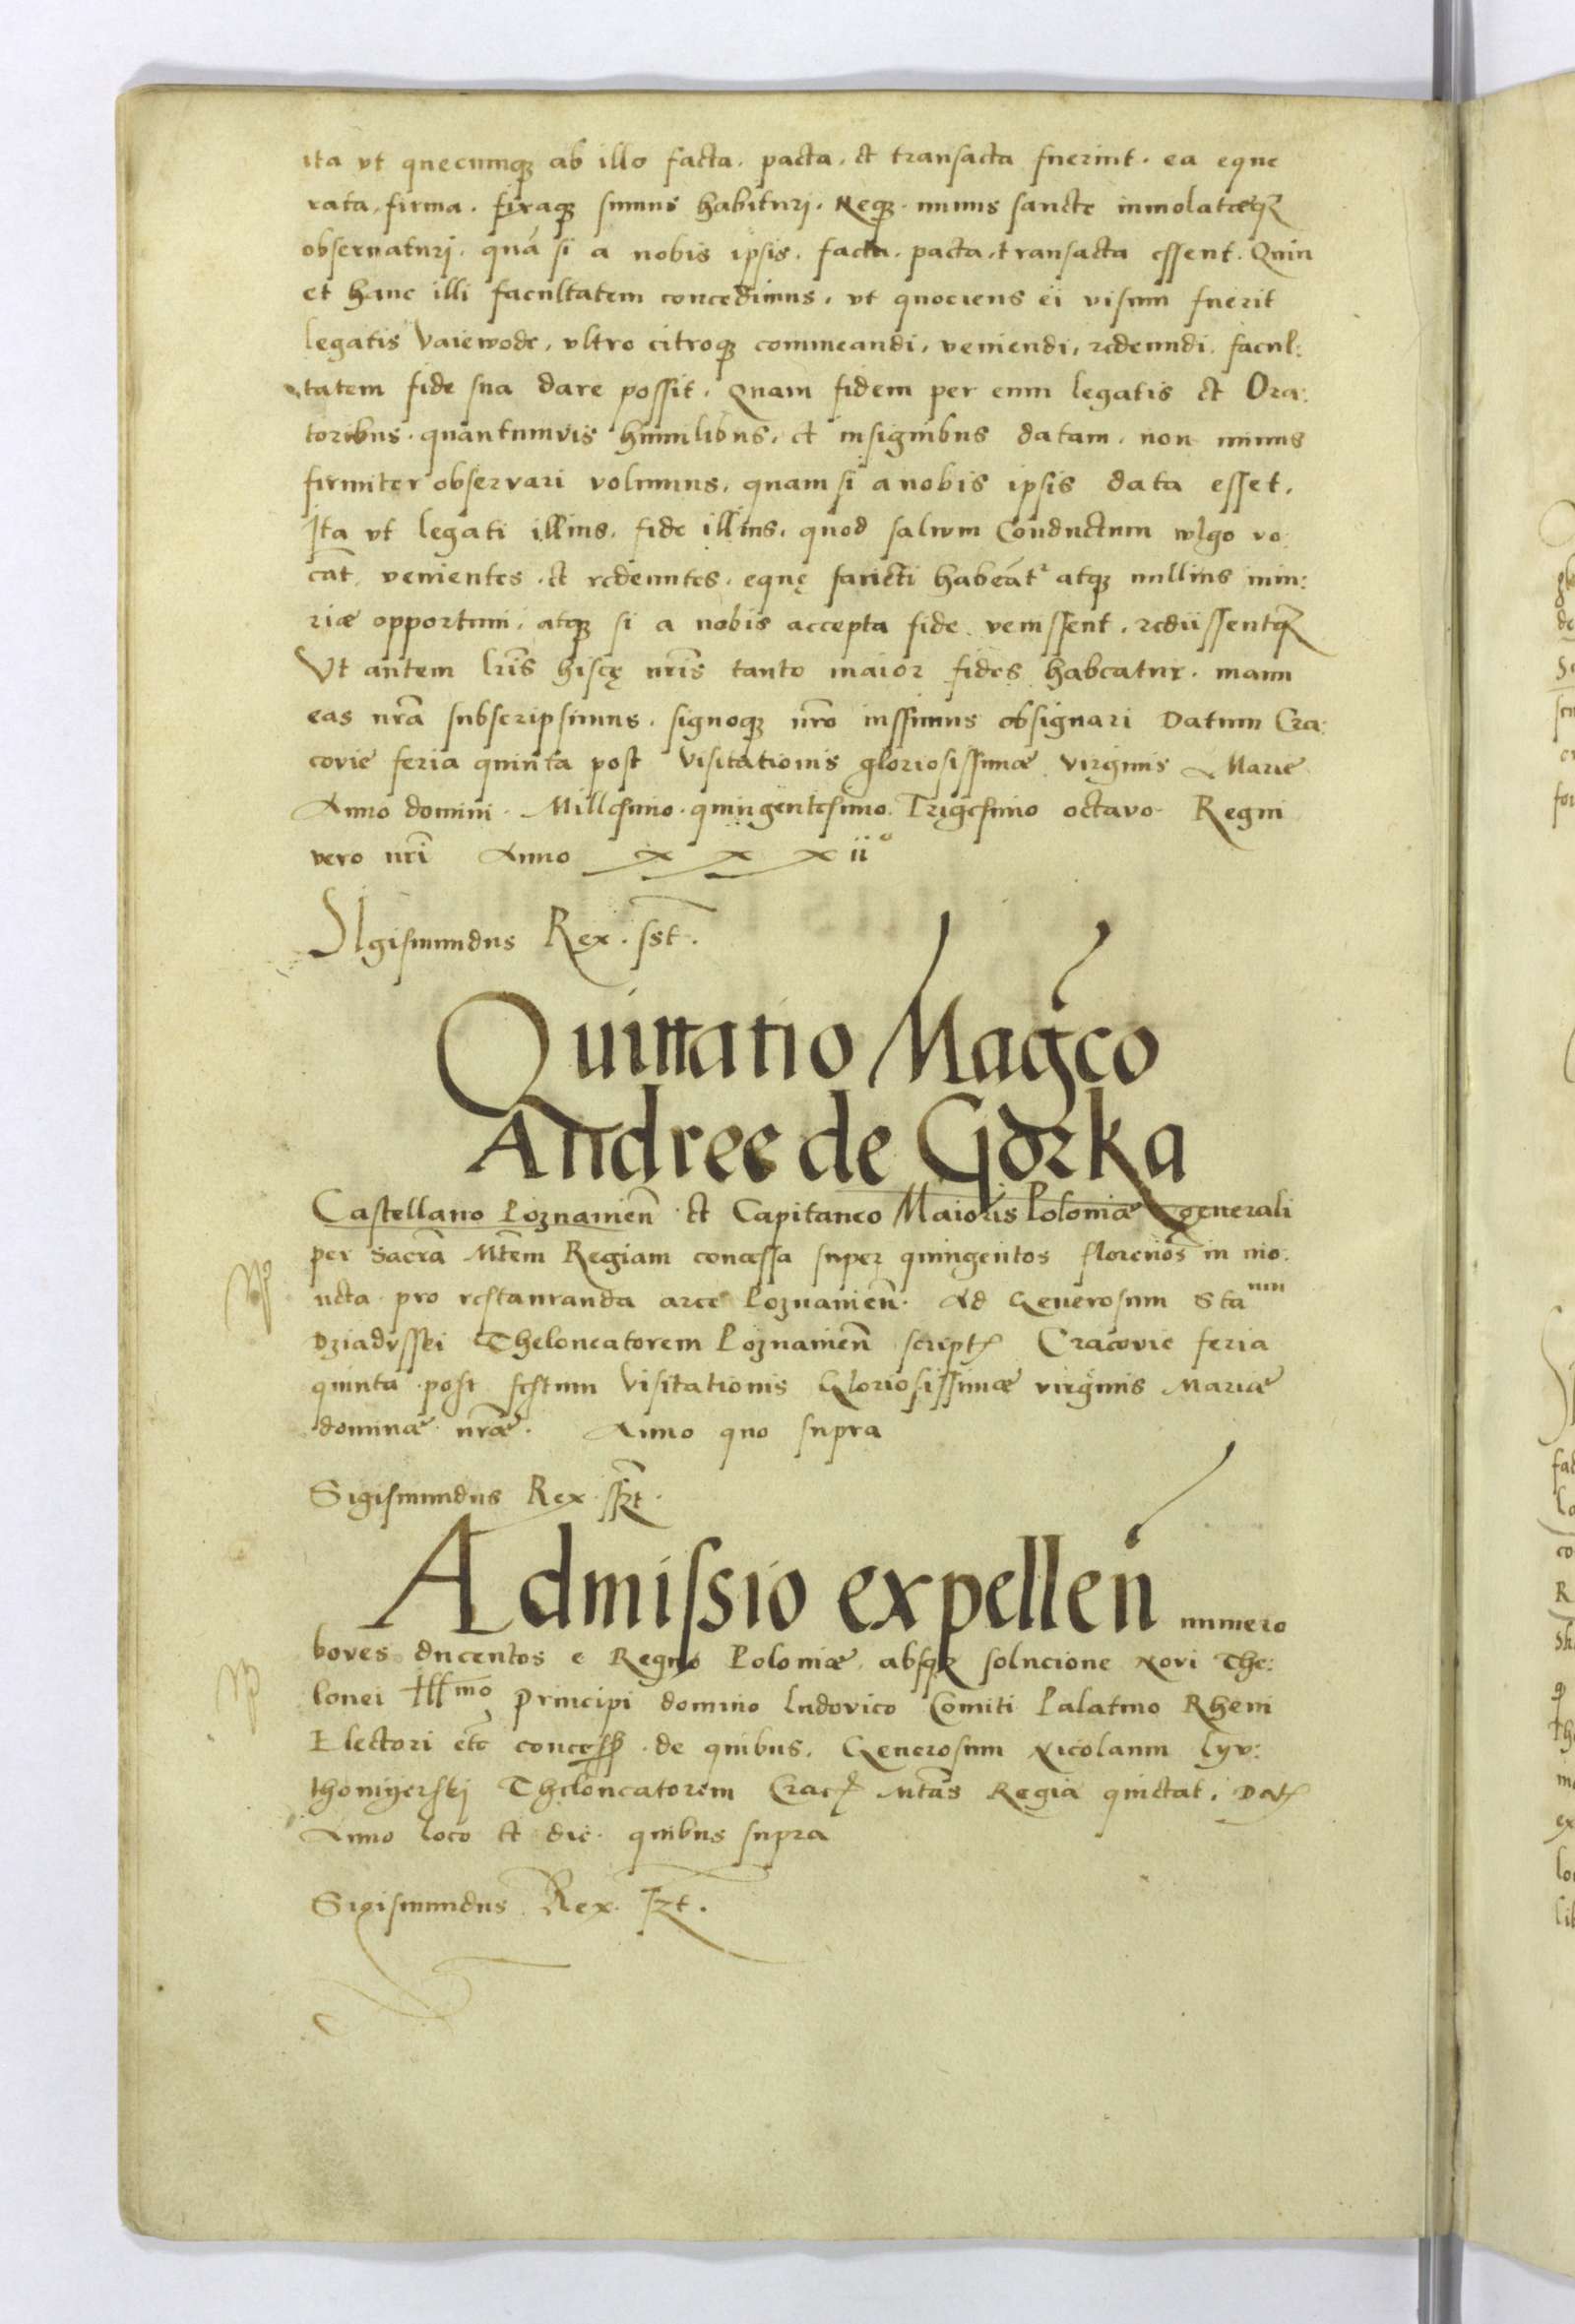 ita vt quecumqꝫ ab illo facta. pacta. et transacta fuerint. ea eque
rata. firma. fixaqꝫ sumus habituri. Neqꝫ minus sancte inviolateqꝫ
obseruaturi. quā si a nobis ipsis. facta. pacta. transacta essent. Quin
et hanc illi facultatem concedimus. vt quociens ei visum fuerit
legatis Vaiewode, vltro citroqꝫ commeandi, veniendi, redeundi. facul:
tatem fide sua dare possit. Quam fidem per eum legatis et Ora:
toribus. quantumvis humilibus. et insignibus datam. non minus
firmiter observari volumus, quam si a nobis ipsis data esset.
Ita vt legati illius. fide illius. quod salwm Conductum wlgo vo:
cāt, venientes. et redeuntes. equę sancti habeāt² atqꝫ nullius iniu:
riæ opportuni. atqꝫ si a nobis accepta fide venissent. rediissentqꝫ
Vt autem lr̄is hiscę nr̄is tanto maior fides habeatur. manu
eas nr̄a subscripsimus. signoqꝫ nr̄o iussimus obsignari Datum Cra:
covie feria quinta post Visitationis gloriosissimæ virginis Marie
Anno domini. Millesimo. quingentesimo. Trigesimo octavo. Regni
vero nr̄i Anno x x x iiº
SIgismundus Rex. sst̄.
Quittatio Mag̃co
Andree de Gorka
Castellano Poznanien̄ et Capitaneo Maioris Poloniæ generali
per Sacrā Mt̄em Regiam concessa super quingentos florenos in mo:
neta. pro restauranda arce Poznanien̄. Ad Generosum Staⁿᵘᵐ
Dziadvsski Theloneatorem Poznanien̄ scriptꝭ Cracovie feria
quinta post festum Visitationis Gloriosissimæ virginis Mariæ
dominæ nr̄æ. Anno quo supra
Sigismundus Rex. sszt̄.
Admissio expellen̄ numero
boves ducentos e Regno Poloniæ absqꝫ solucione Novi The:
lonei Illᵐᵒ Principi domino Ludovico Comiti Palatino Rheni
Electori etc̄ concess. de quibus. Generosum Nicolaum Lyv:
thomyerskj Theloneatorem Cracꝭ Mt̄as Regia quictat. Datꝭ
Anno loco et die. quibus supra
Sigismundus Rex. szt.